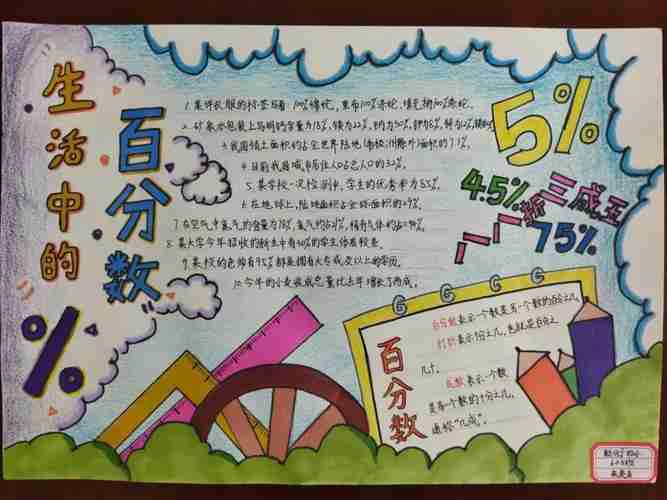 生活中的
百分数
%
1.某件衣服的标签写着:100%棉优,里布100%涤纶,填充物100%涤纶。
2.矿泉水包装上写明钙含量为18%,镁为22%,钠为30%,
3.我国领土面积约占全世界陆地(南极洲除外)面积的7.1%。
4.目前我县城市居住人口占总人口的32%。
5.某学校一次检测中,学生的优秀率为85%。
6.在地球上,陆地面积占全球面积的29%。
7.在空气中氮气的含量为78%,氧气约占21%,稀有气体约占0.94%。
8.某大学今年招收的新生中有30%的学生信商较差。
9.某校的老师有95%都是拥有大专或及以上的学历。
10.今年的小麦收成总量比去年增长了两成。
5%
4.5%
三成五
一一折
75%
百分数
百分数表示一个数是另一个数的百分之几
打折表示十分之几,也就是百分之
几十。
成数表示一个数
是另一个数的十分之几,
通称“几成”。